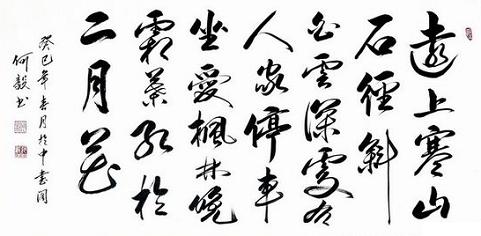 遠上寒山
石徑斜
白雲深處有
人家停車
坐愛楓林晚
霜葉紅於
二月花
癸巳年春月於中書
何毅書